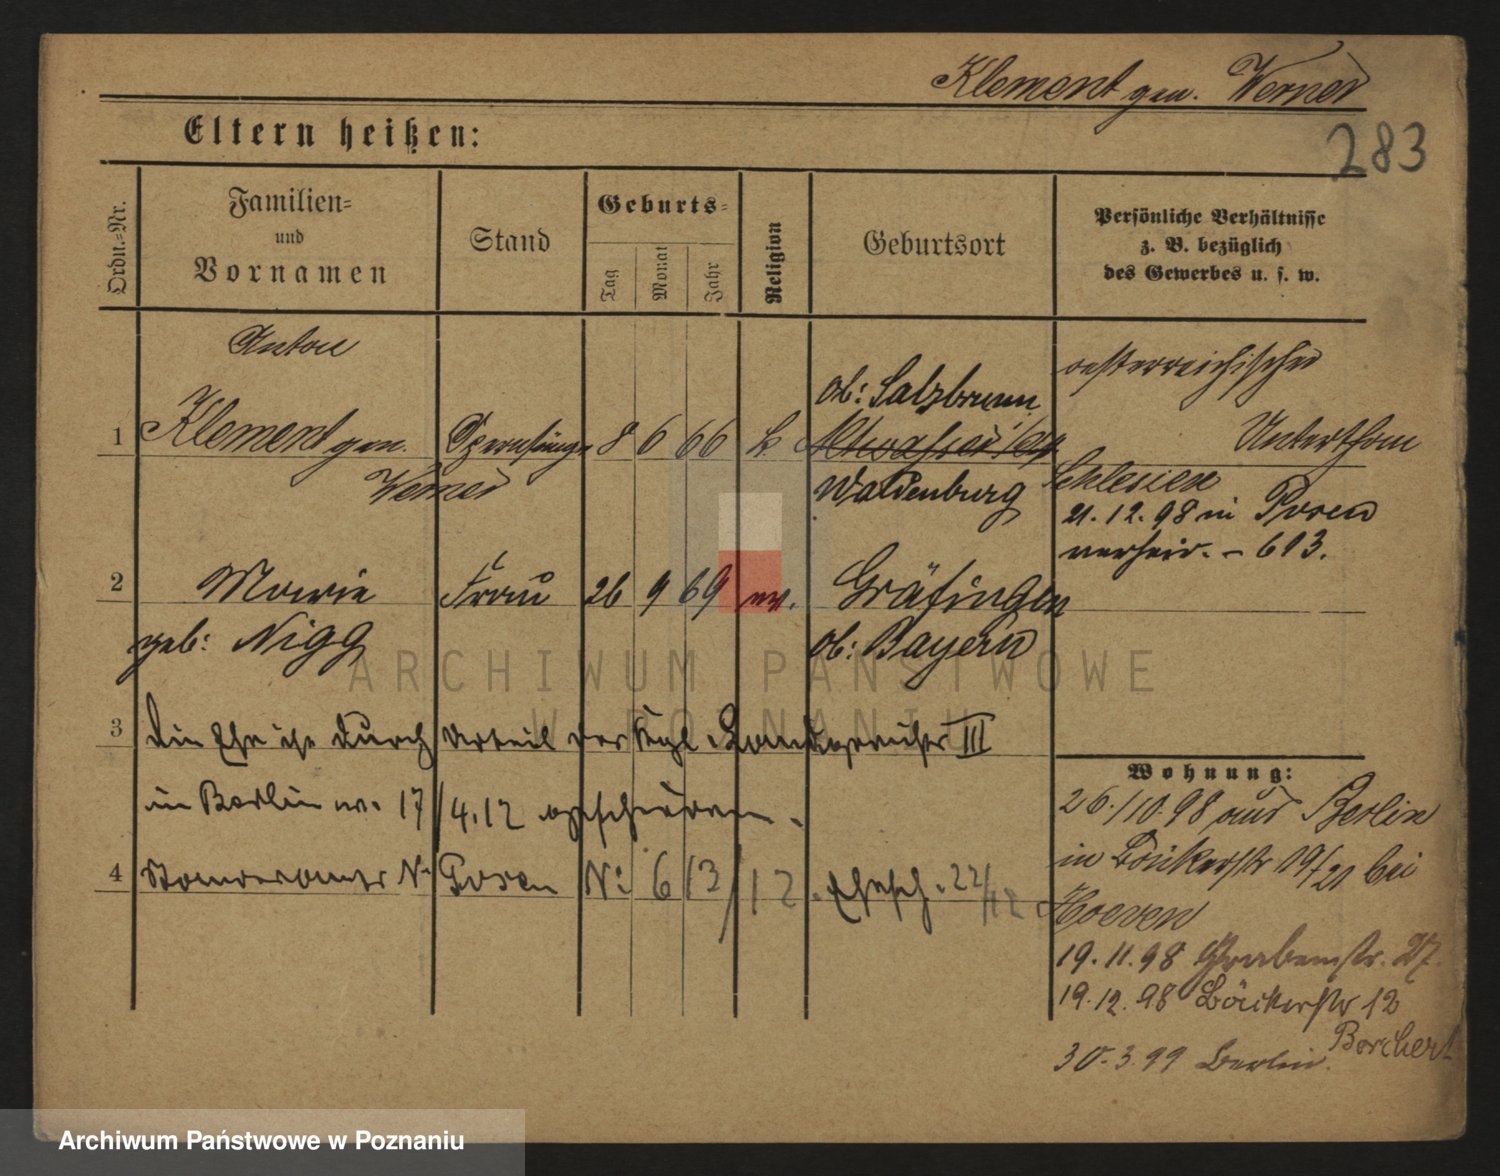 Klement gen. Werner
283
Eltern heißen:
Ordn.-Nr.
Familien-
und
Vornamen
Stand
Geburts-
Tag
Monat
Jahr
Religion
Geburtsort
Persönliche Verhältnisse
z. B. bezüglich
des Gewerbes u. s. w.
Anton
1 Klement gen.
Werner
Opernsänger 8 6 66 k
ob: Salzbrunn
Waldenburg Schlesien
oesterreichischer
Unterthan
21.12.98 in Posen
verheir. - 613.
2 Marie Frau 26 9 69 ev. Gräfingen
geb: Nigg ob: Bayern
3 Die Ehe ist durch Urteil des Kgl. Landgerichts III
in Berlin v. 17/4.12 geschieden.
4 Standesamt Posen No: 613/12. Ehesch. 22/12
Wohnung:
26./10.98 aus Berlin
in Bäckerstr 19/21 bei
Hoeven
19.11.98 Grabenstr. 27.
19.12.98 Bäckerstr 12
Borchert
30.3.99 Berlin.
ARCHIWUM PAŃSTWOWE
W POZNANIU
Archiwum Państwowe w Poznaniu